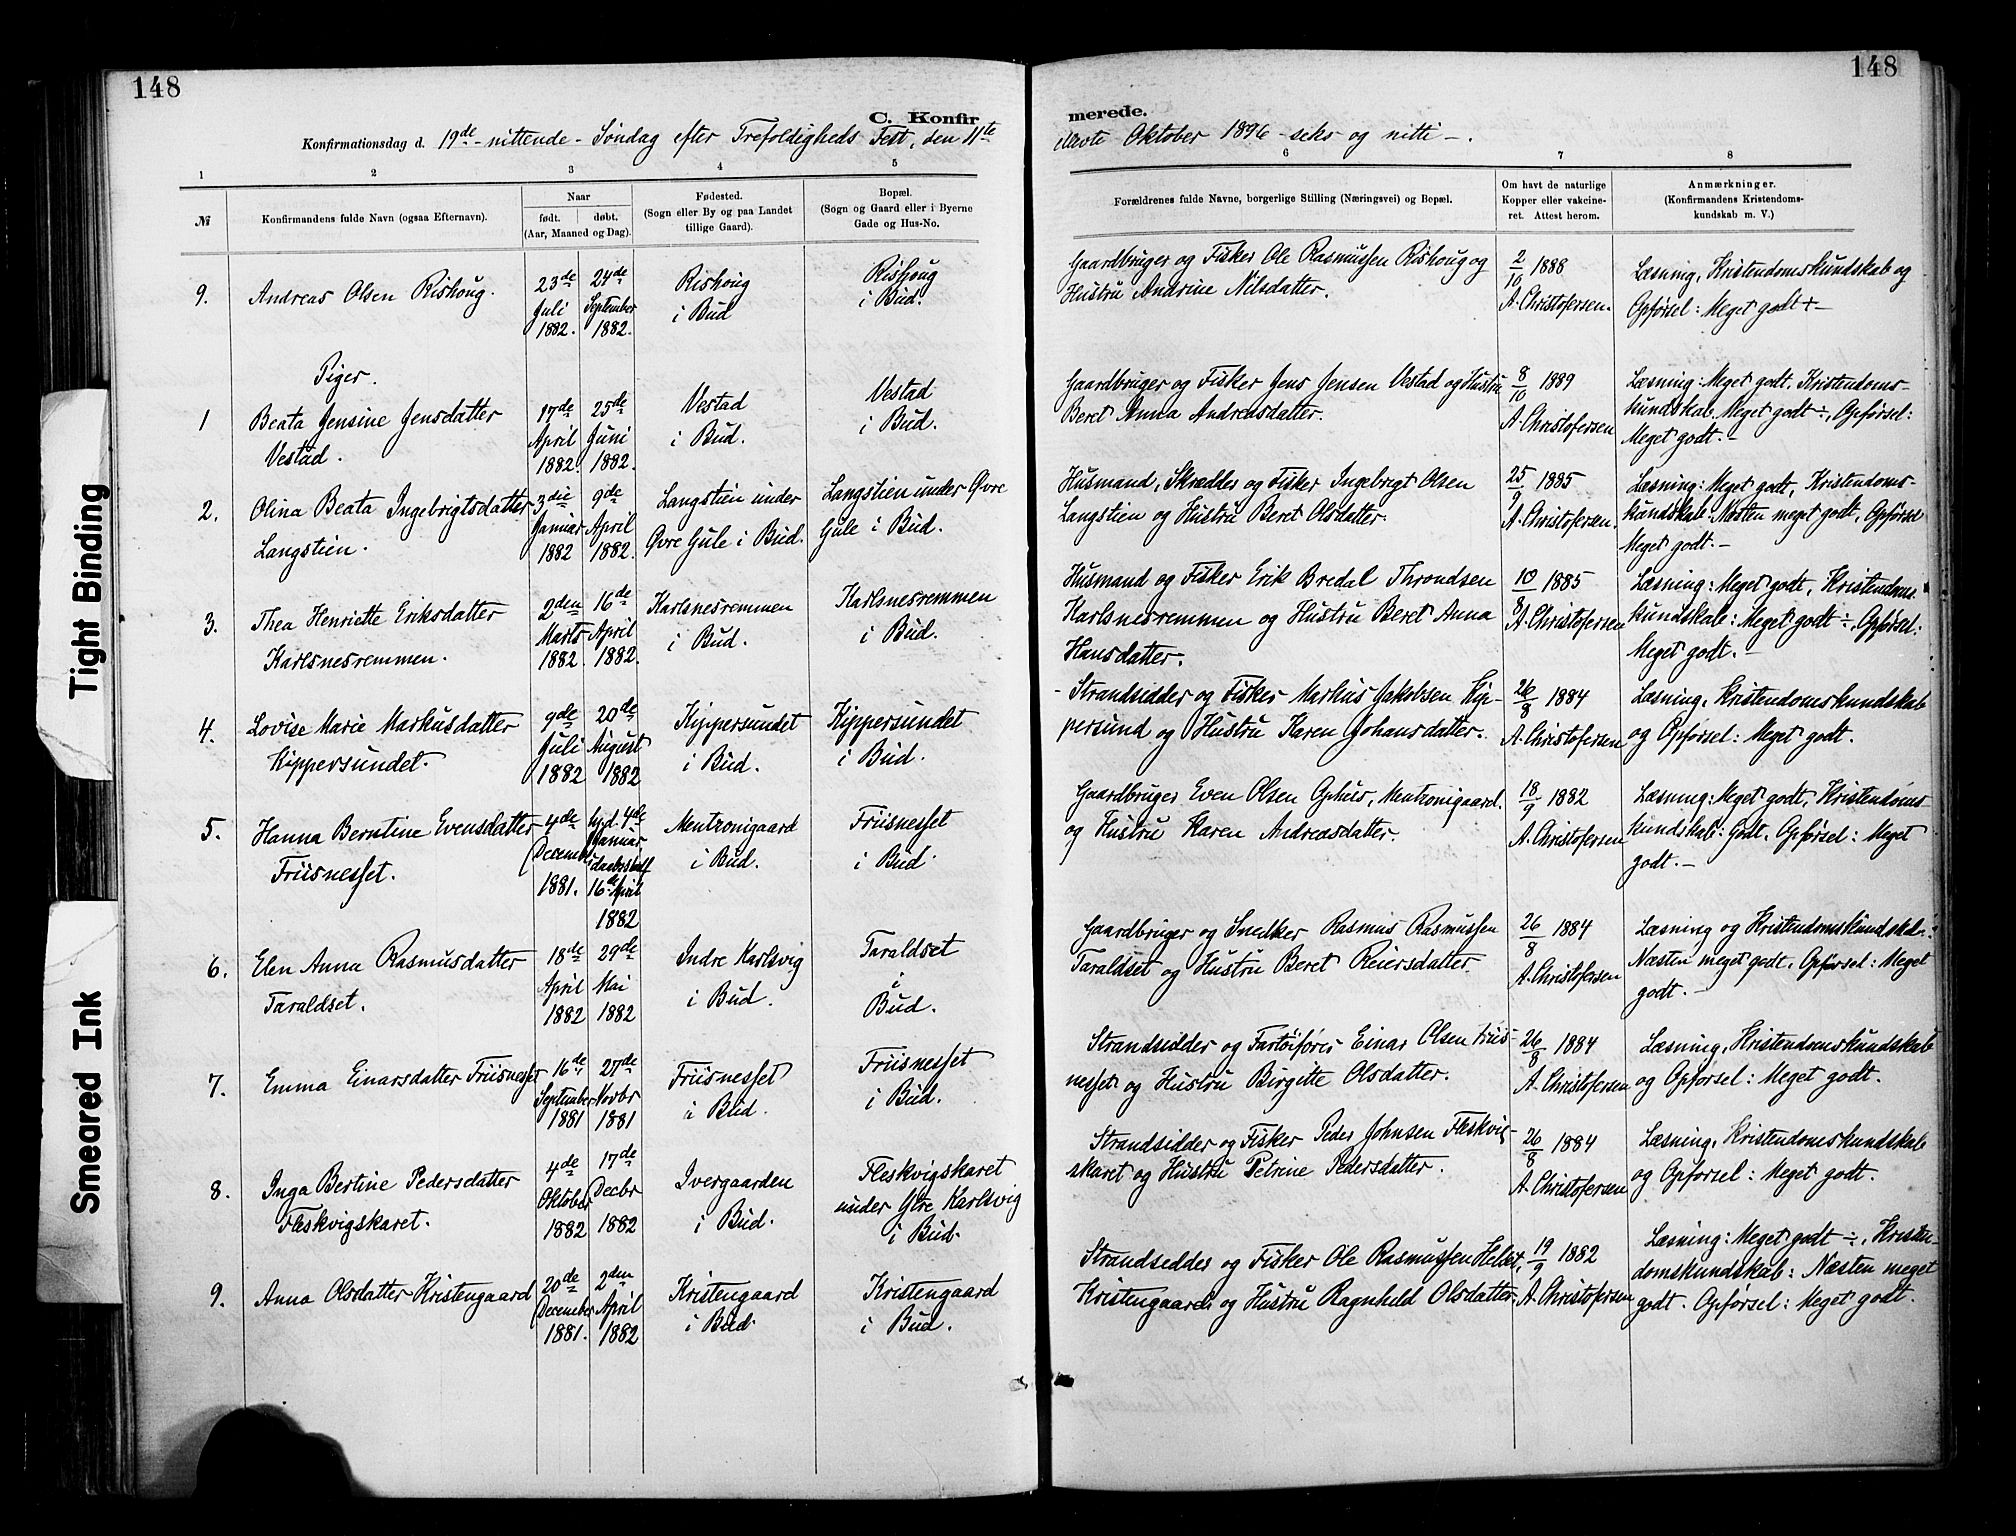 148
148
C. Konfirmerede.
Konfirmationsdag d. 19de - nittende - Søndag efter Trefoldigheds Fest, den 11te ellevte Oktober 1896 - seks og nitti -.
1 2 3 4 5 6 7 8
№
Konfirmandens fulde Navn (ogsaa Efternavn).
Naar
født. døbt.
(Aar, Maaned og Dag).
Fødested.
(Sogn eller By og paa Landet
tillige Gaard).
Bopæl.
(Sogn og Gaard eller i Byerne
Gade og Hus-No.
Forældrenes fulde Navne, borgerlige Stilling (Næringsvei) og Bopæl.
Om havt de naturlige
Kopper eller vakcine-
ret. Attest herom.
Anmærkninger.
(Konfirmandens Kristendoms-
kundskab m. V.)
9. Andreas Olsen Rishoug.
23de Juli 1882.
24de September 1882.
Rishoug
i Bud
Rishoug
i Bud.
Gaardbruger og Fisker Ole Rasmussen Rishoug og
Hustru Andrine Nilsdatter.
2/10 1888
A. Christofersen.
Læsning, Kristendomskundskab og
Opførsel: Meget godt +-
Piger.
1 Beata Jensine Jensdatter
Vestad.
17de April 1882.
25de Juni 1882.
Vestad
i Bud.
Vestad
i Bud.
Gaardbruger og Fisker Jens Jensen Vestad og Hustru
Beret Anna Andreasdatter.
8/10 1889
A. Christofersen
Læsning: Meget godt. Kristendoms-
kundskab Meget godt ÷, Opførsel:
Meget godt. -
2. Olina Beata Ingebrigtsdatter
Langstien.
3die Januar 1882
9de April 1882.
Langstien under
Øvre Gule i Bud.
Langstien under Øvre
Gule i Bud.
Husmand, Skrædder og Fisker Ingebrigt Olsen
Langstien og Hustru Beret Olsdatter.
25/9 1885
A. Christofersen.
Læsning: Meget godt, Kristendoms-
kundskab: Næsten meget godt, Opførsel
Meget godt. -
3. Thea Henriette Eriksdatter
Karlsnesremmen.
2den Marts 1882.
16de April 1882.
Karlsnesremmen
i Bud.
Karlsnesremmen
i Bud.
Husmand og Fisker Erik Bredal Throndsen
Karlsnesremmen og Hustru Beret Anna
Hansdatter.
10/8 1885
A. Christofersen
Læsning: Meget godt, Kristendoms
kundskab: Meget godt ÷, Opførsel:
Meget godt. -
4. Lovise Marie Markusdatter
Kippersundet.
9de Juli 1882
20de August 1882
Kippersundet
i Bud.
Kippersundet
i Bud.
- Strandsidder og Fisker Markus Jakobsen Kip-
persund og Hustru Karen Johansdatter.
26/8 1884
A. Christofersen
Læsning, Kristendomskundskab
og Opførsel: Meget godt.
5. Hanna Berntine Evensdatter
Friisnesset.
4de December 1881.
hjd. 4de Januar
16de April 1882
Mentzonigaard
i Bud.
Friisnesset
i Bud.
Gaardbruger Even Olsen Ophus, Mentzonigaard.
og Hustru Karen Andreasdatter.
18/9 1882
A. Christofersen
Læsning: Meget godt, Kristendoms
kundskab: Godt. Opførsel: Meget
godt. -
6. Elen Anna Rasmusdatter
Taraldset.
18de April 1882
29de Mai 1882
Indre Karlsvig
i Bud.
Taraldset
i
Bud.
Gaardbruger og Snedker Rasmus Rasmussen
Taraldset og Hustru Beret Reiersdatter
26/8 1884
A. Christofersen
Læsning og Kristendomskundskab:
Næsten meget godt. Opførsel: Meget
godt. -
7. Emma Einarsdatter Friisnesset
16de September 1881
27de Novbr 1881
Friisnesset
i Bud.
Friisnesset
i Bud.
Strandsidder og Fartøifører Einar Olsen Friis-
nesset og Hustru Birgitte Olsdatter.
26/8 1884
A. Christofersen
Læsning, Kristendomskundskab
og Opførsel: Meget godt.
8. Inga Bertine Pedersdatter
Fleskvigskaret.
4de Oktober 1882
17de Decbr 1882
Ivergaarden
i Bud.
Fleskvigskaret
under Ytre Karlsvig
i Bud.
Strandsidder og Fisker Peder Johnsen Fleskvig-
skaret og Hustru Petrine Pedersdatter.
26/8 1884
A. Christofersen
Læsning, Kristendomskundskab
og Opførsel: Meget godt.
9. Anna Olsdatter Kristengaard
20de December 1881.
2den April 1882
Kristengaard
i Bud.
Kristengaard
i Bud.
Strandsidder og Fisker Ole Rasmussen
Kristengaard og Hustru Ragnhild Olsdatter.
19/9 1882
A. Christofersen
Læsning: Meget godt ÷, Kristen-
domskundskab: Næsten meget
godt. Opførsel: Meget godt.
Tight Binding
Smeared Ink